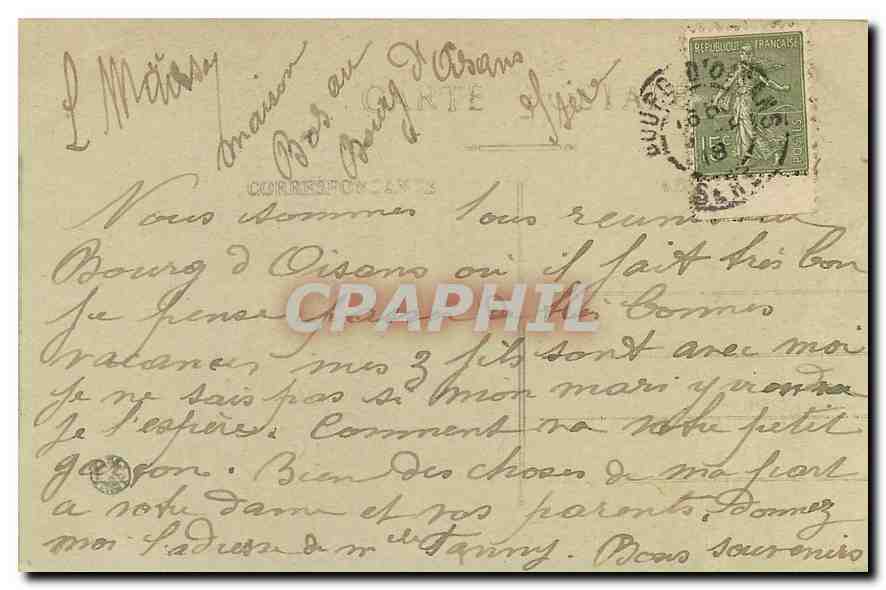 L
maison
Bos. au
Bourg d'Oisans
Isère
CARTE
CORRESPONDANCE
RÉPUBLIQUE FRANÇAISE
15c
POSTES
BOURG D'OISANS
CPARPHIL
Nous sommes tous reunis
Bourg d Oisans où il fait très bon
Je pense passer de bonnes
vacances mes 3 fils sont avec moi
je ne sais pas si mon mari y viendra
je l'espère. Comment va votre petit
garçon. Bien des choses de ma part
a votre dame et vos parents, donnez
moi l'adresse de melle Fanny. Bons souvenirs